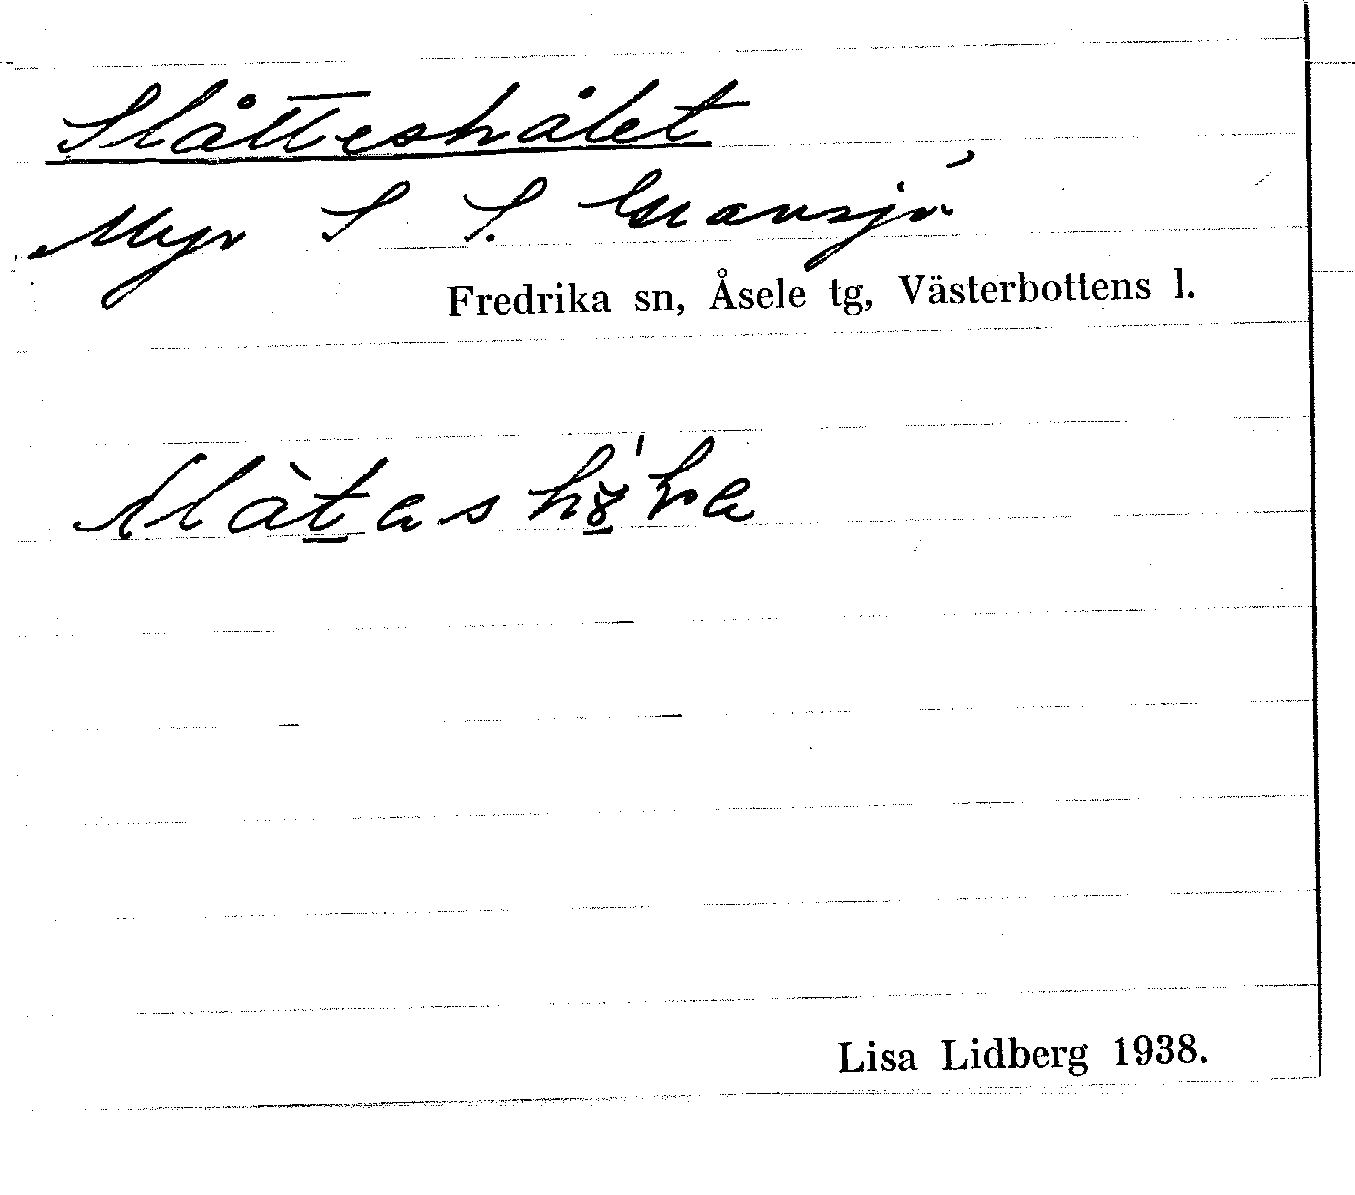 Slåtteshålet
Myr S S. Gransjö
Fredrika sn, Åsele tg, Västerbottens l.
Lisa Lidberg 1938.